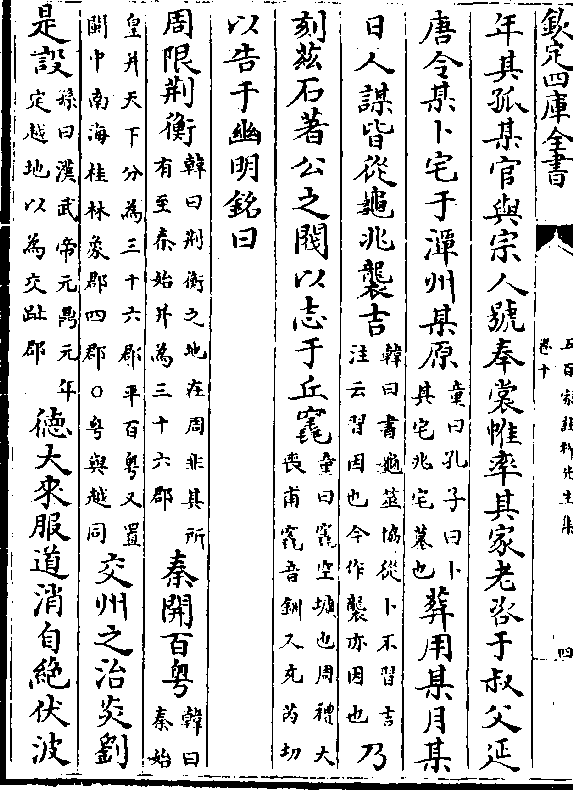 欽定四庫全書
五百家註柳先生集
卷十
四
年其孤某官與宗人號奉裳帷率其家老咨于叔父延
唐令某卜宅于潭州某原童曰孔子曰卜其宅兆宅墓也葬用某月某
日人謀皆從龜兆襲吉韓曰書龜筮協從卜不習吉注云習因也今作襲亦因也乃
刻茲石著公之閥以志于丘竁童曰竁空壙也周禮大喪甫竁音釧又充芮切
以告于幽明銘曰
周限荆衡韓曰荆衡之地在周非其所有至秦始并為三十六郡秦開百粤韓曰秦始
皇并天下分為三十六郡平百粤又置閩中南海桂林象郡四郡○粤與越同交州之治炎劉
是設孫曰漢武帝元鼎元年定越地以為交趾郡德大來服道消自絶伏波